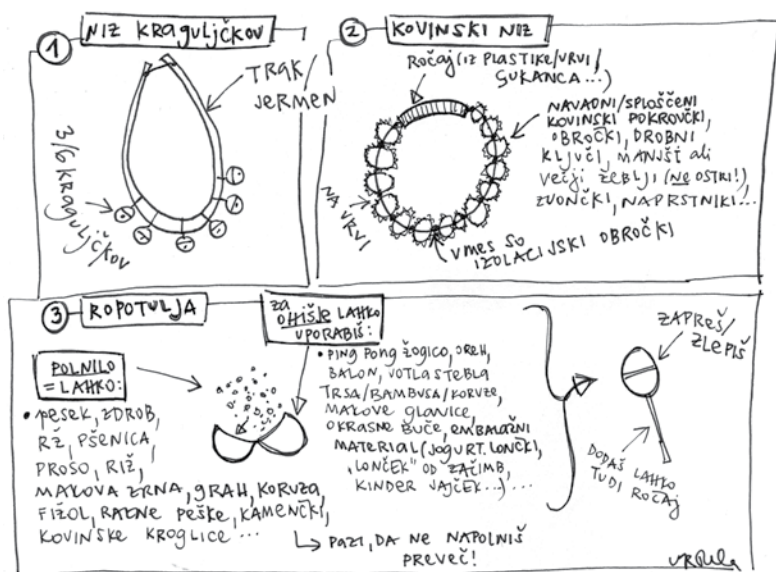 1
NIZ KRAGULJČKOV
TRAK
JERMEN
3/6 KRAGULJČKOV
2
KOVINSKI NIZ
ROČAJ (IZ PLASTIKE/VRVI/
SUKANCA...)
NAVADNI/SPLOŠČENI
KOVINSKI POKROVČKI,
OBROČKI, DROBNI
KLJUČI, MANJŠI ali
VEČJI ŽEBLJI (NE OSTRI!),
ZVONČKI, NAPRSTNIKI...
NA VRVI
VMES SO
IZOLACIJSKI OBROČKI
3
ROPOTULJA
POLNILO
=LAHKO:
• PESEK, ZDROB,
RŽ, PŠENICA,
PROSO, RIŽ,
MAKOVA ZRNA, GRAH, KORUZA,
FIŽOL, RAZNE PEŠKE, KAMENČKI,
KOVINSKE KROGLICE ...
za
OHIŠJE LAHKO
UPORABIŠ:
• PING PONG ŽOGICO, OREH,
BALON, VOTLA STEBLA
TRSA/BAMBUSA/KORUZE,
MAKOVE GLAVICE,
OKRASNE BUČE, EMBALAŽNI
MATERIAL (JOGURT. LONČKI,
"LONČEK" OD ZAČIMB,
KINDER JAJČEK...)...
PAZI, DA NE NAPOLNIŠ
PREVEČ!
ZAPREŠ/
ZLEPIŠ
DODAŠ LAHKO
TUDI ROČAJ